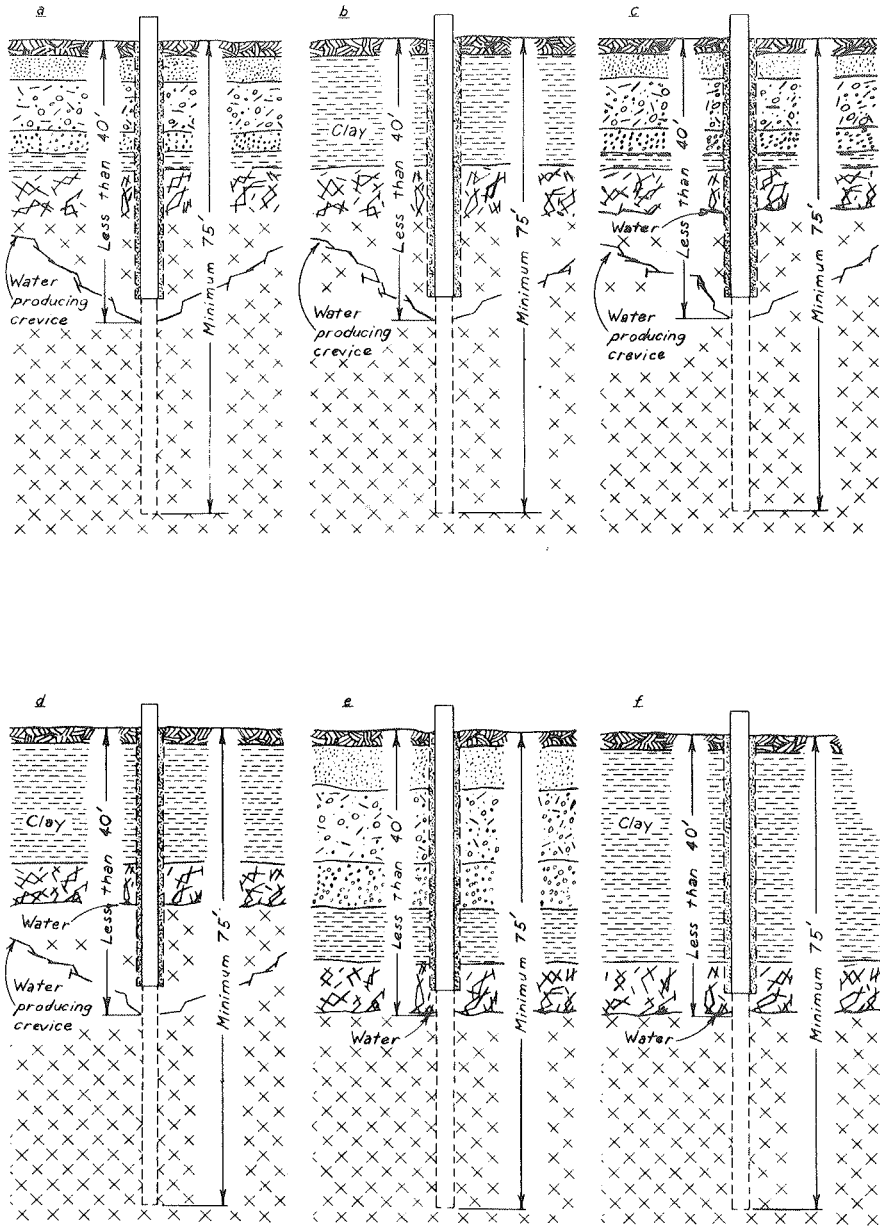 a
Less than 40'
Minimum 75'
Water
producing
crevice
b
Clay
Less than 40'
Minimum 75'
Water
producing
crevice
c
Less than 40'
Minimum 75'
Water
Water
producing
crevice
d
Clay
Less than 40'
Minimum 75'
Water
Water
producing
crevice
e
Less than 40'
Minimum 75'
Water
f
Clay
Less than 40'
Minimum 75'
Water